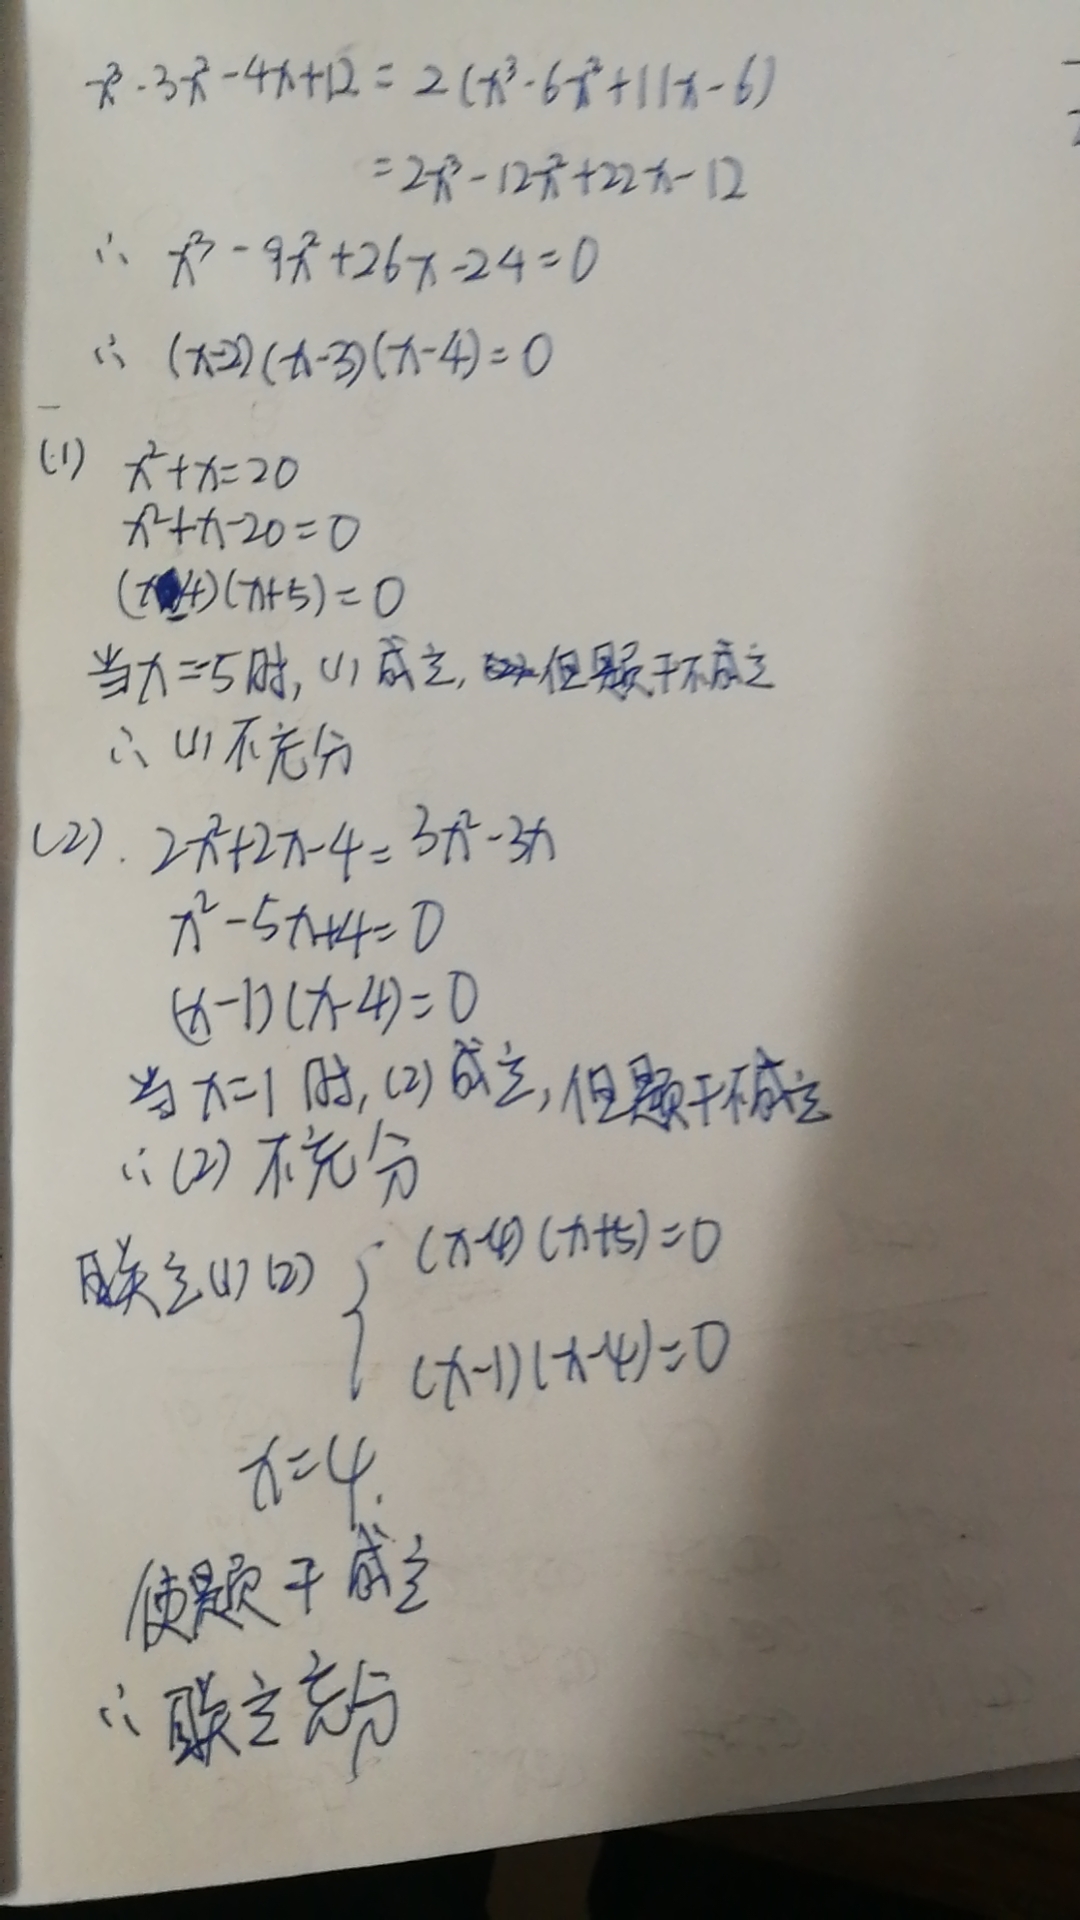 x³-3x²-4x+12=2(x³-6x²+11x-6)
=2x³-12x²+22x-12
∴ x³-9x²+26x-24=0
∴ (x-2)(x-3)(x-4)=0
(1) x²+x=20
x²+x-20=0
(x-4)(x+5)=0
当x=-5时,(1)成立,但题干不成立
∴(1)不充分
(2). 2x²+2x-4=3x²-3x
x²-5x+4=0
(x-1)(x-4)=0
当x=1时,(2)成立,但题干不成立
∴(2)不充分
联立(1)(2) { (x-4)(x+5)=0
(x-1)(x-4)=0
x=4.
使题干成立
∴联立充分